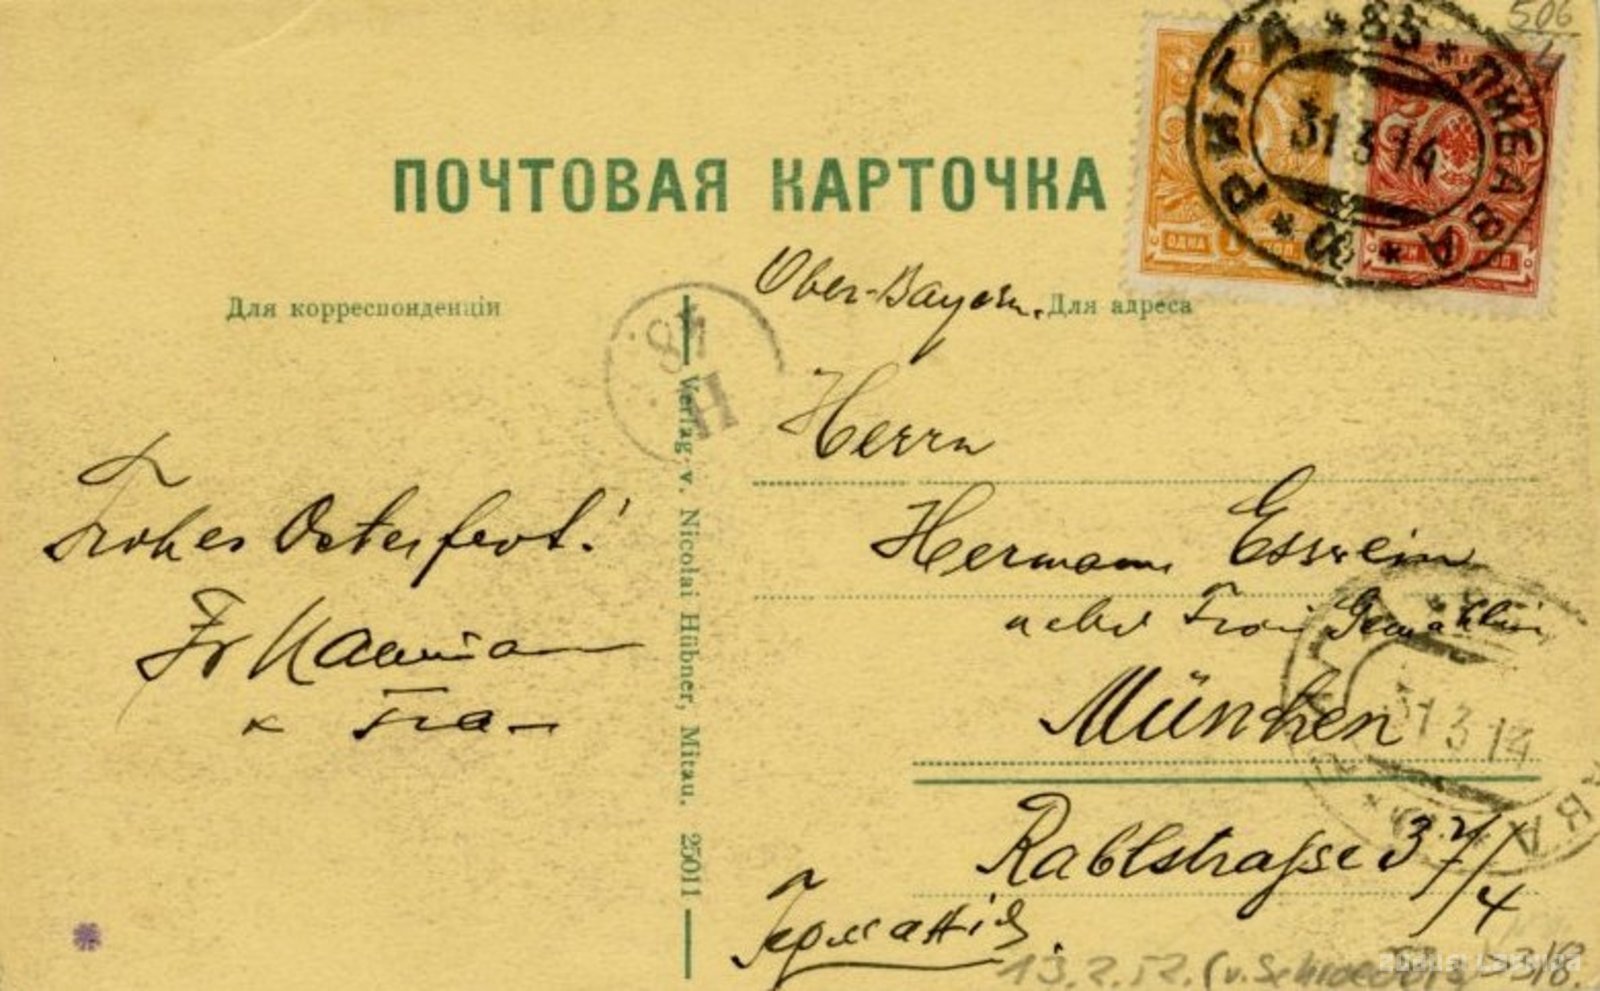 506
РИГА * 85 * ЛИБАВА
31 3 14
ПОЧТОВАЯ КАРТОЧКА
ОДНА 1 КОП
КОП
Для корреспонденціи
Ober-Bayern.
Для адреса
Herrn
Hermann Esswein
nebst Frau Gemahlin
München
31 3 14
Rablstrasse 37/4
Германія.
Frohes Osterfest!
Fr Naumann
Frau
Verlag v. Nicolai Hübner, Mitau. 25011
13.2.52. (v. Schroeder)
318.